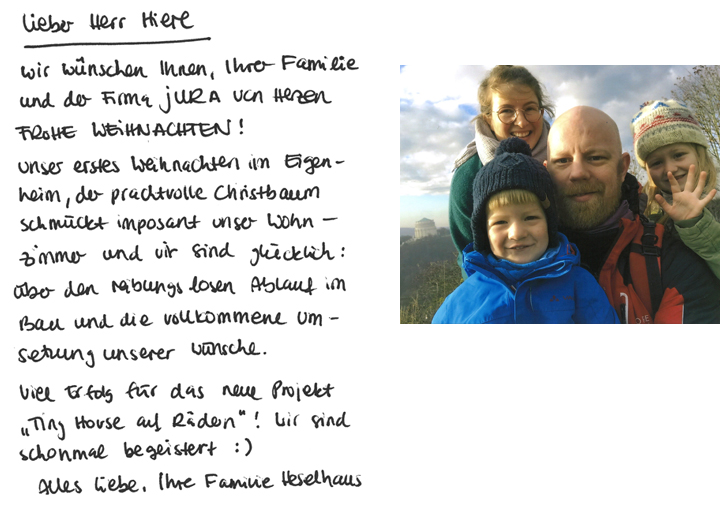 Lieber Herr Hierl
wir wünschen Ihnen, Ihrer Familie
und der Firma JURA von Herzen
FROHE WEIHNACHTEN!
unser erstes Weihnachten im Eigen-
heim, der prachtvolle Christbaum
schmückt imposant unser Wohn-
zimmer und wir sind glücklich:
über den reibungslosen Ablauf im
Bau und die vollkommene Um-
setzung unserer Wünsche.
Viel Erfolg für das neue Projekt
„Tiny House auf Rädern“! Wir sind
schonmal begeistert :)
Alles Liebe, Ihre Familie Heselhaus